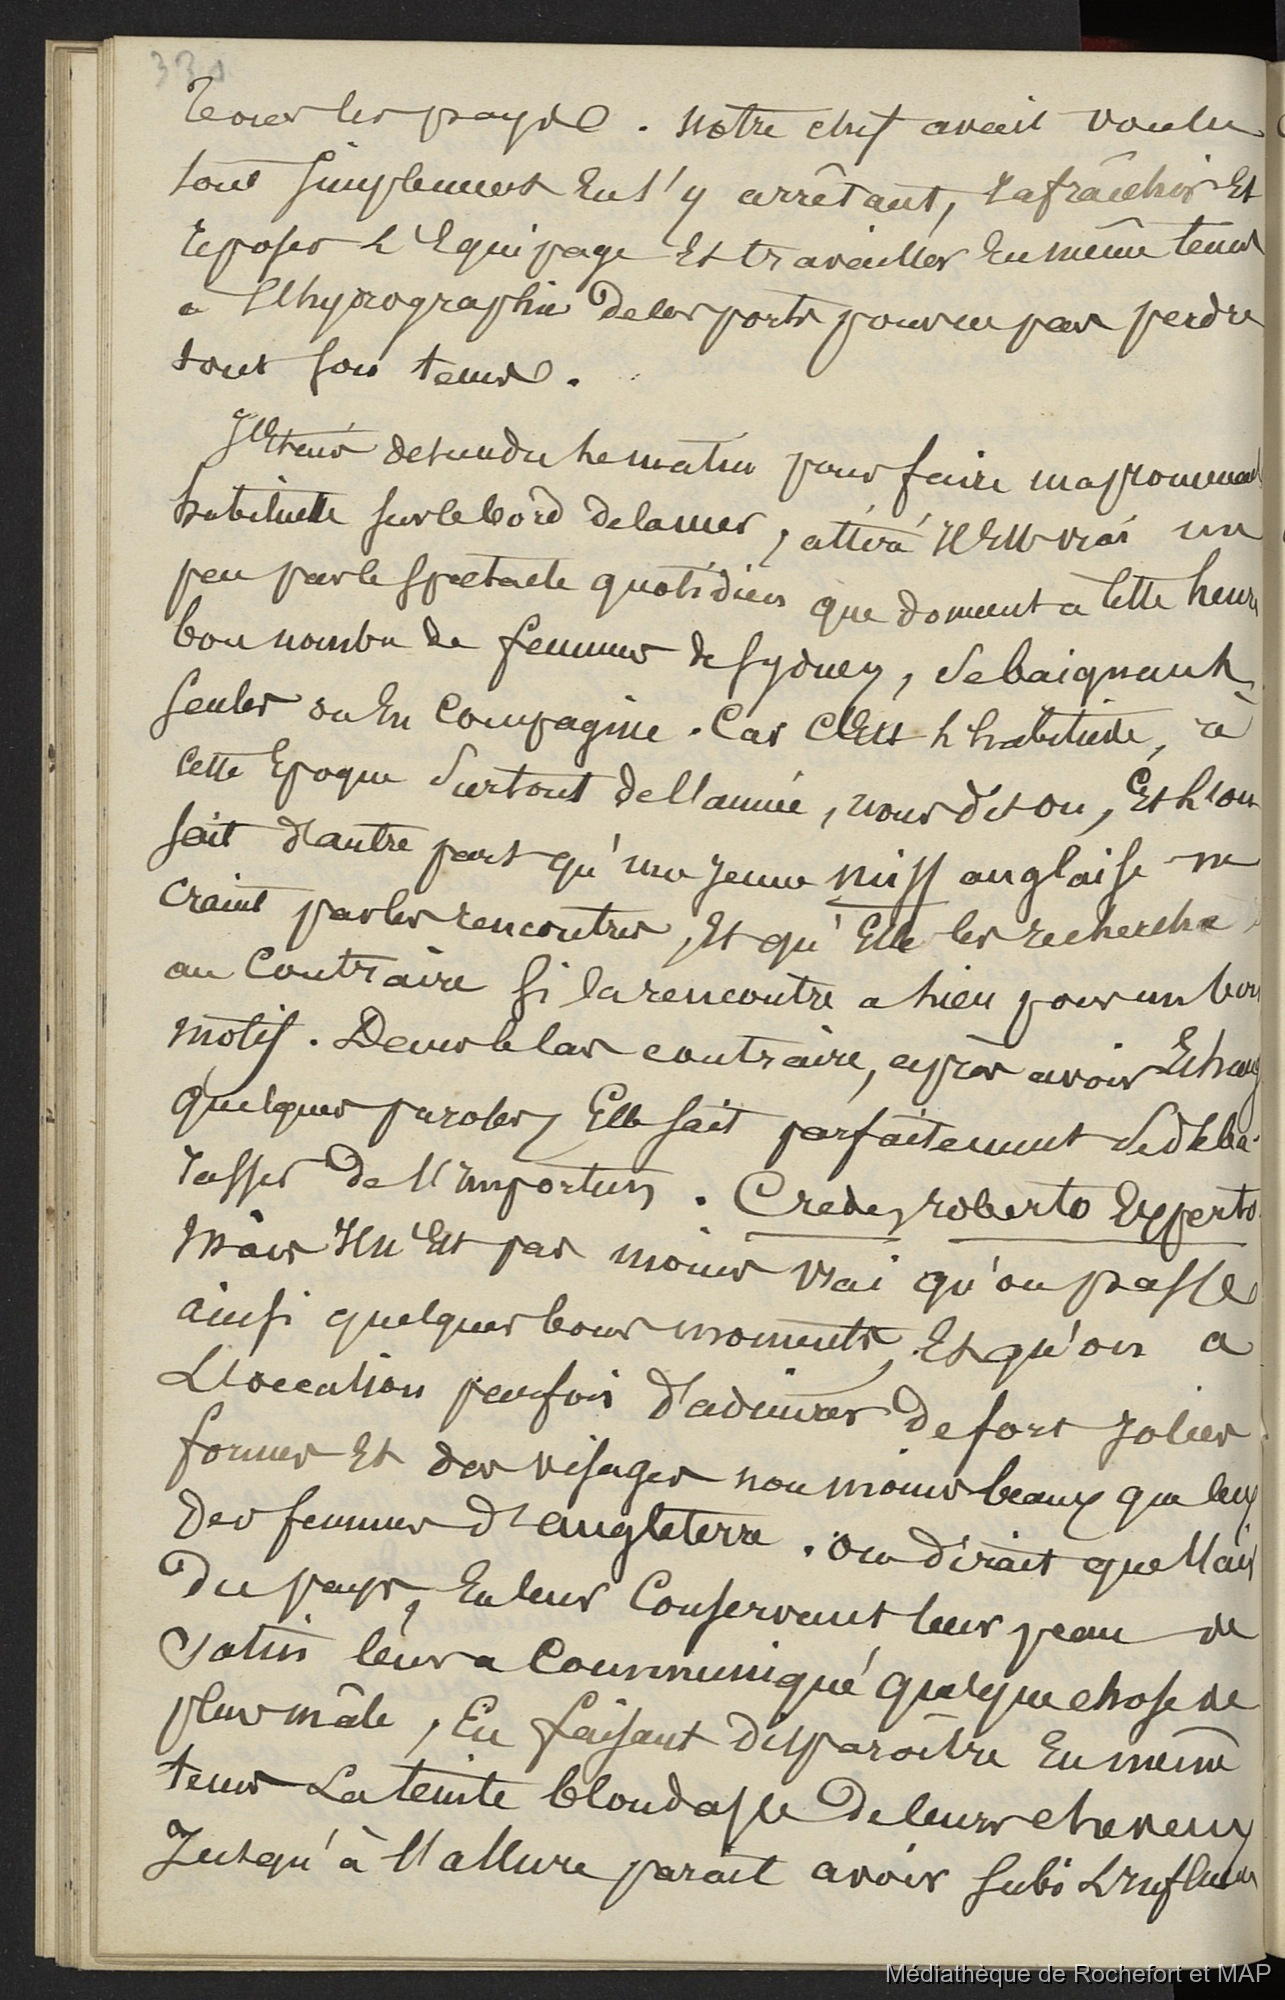 330
tous les pays. Notre chef avait voulu
tout simplement en s'y arrêtant, rafraîchir et
reposer l'Equipage et travailler en même tems
a l'hydrographie de les ports pour ne pas perdre
tout son tems.
J'Etais descendu le matin pour faire ma promenad
habituelle sur le bord de la mer, attiré il est vrai un
peu par le spectacle quotidien que donnent a cette heure
bon nombre de femmes de Sydney, se baignant
seules ou en Compagnie. Car c'Est l'habitude, à
cette Epoque surtout de l'année, nous dit on, Et l'on
sait d'autre part qu'une jeune miss anglaise ne
craint pas les rencontres, Et qu'Elle les recherche
au Contraire si la rencontre a lieu pour un bon
motif. Dans le cas contraire, après avoir Echang
quelques paroles, Elle sait parfaitement se déba-
rasser de l'importun. Crede, roberto Experto
Mais il n'Est pas moins vrai qu'on passe
ainsi quelques bons moments, Et qu'on a
L'occasion parfois d'admirer de fort jolies
formes Et des visages non moins beaux que ceux
des femmes d'angleterre. On dirait que l'air
du pays, En leur Conservant leur peau de
satin leur a Communiqué quelque chose de
plus mâle, En faisant disparoître En même
tems La teinte blondasse de leurs cheveux
Jusqu'à l'allure parait avoir subi L'influence
Médiathèque de Rochefort et MAP